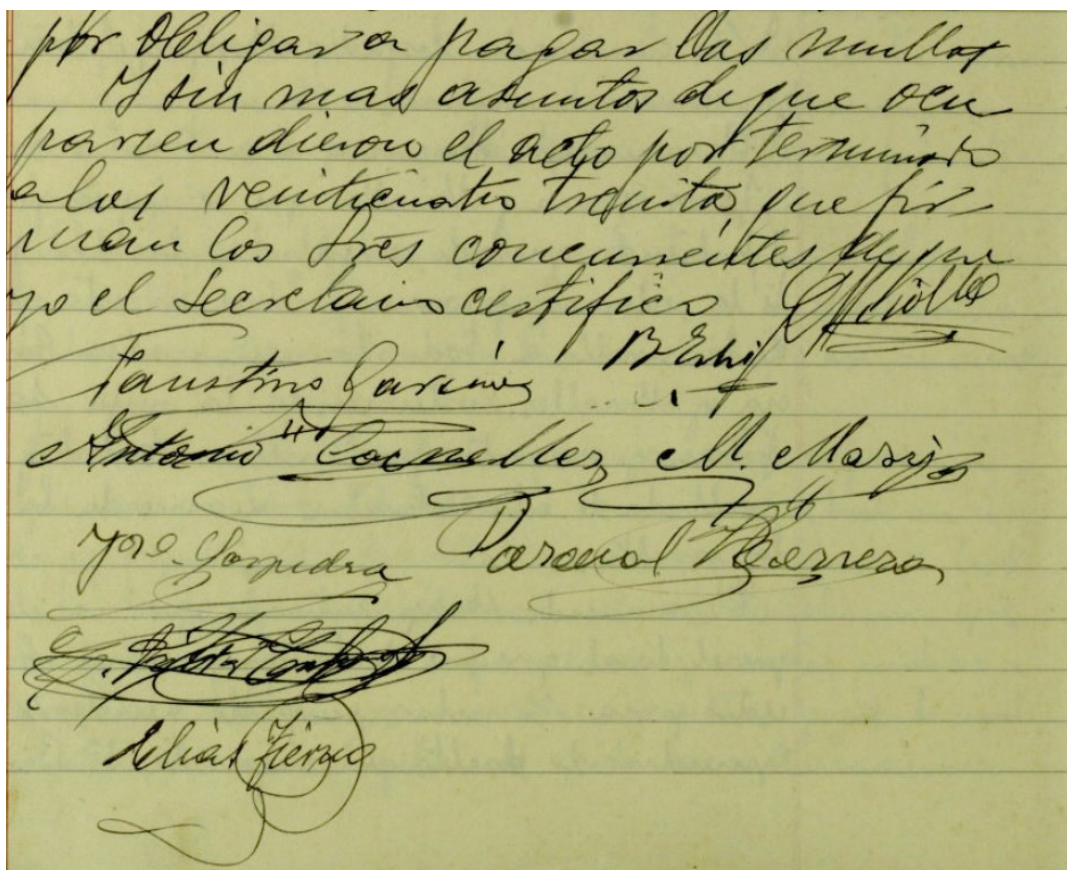 por obligar a pagar las multas
Y sin mas asuntos de que ocu
parsen dieron el acto por terminado
a las veinticuatro treinta, que fir
man los Sres concurrentes de que
yo el Secretario certifico
Faustino
Antonio M. 
José Pascual Herrera
Elias